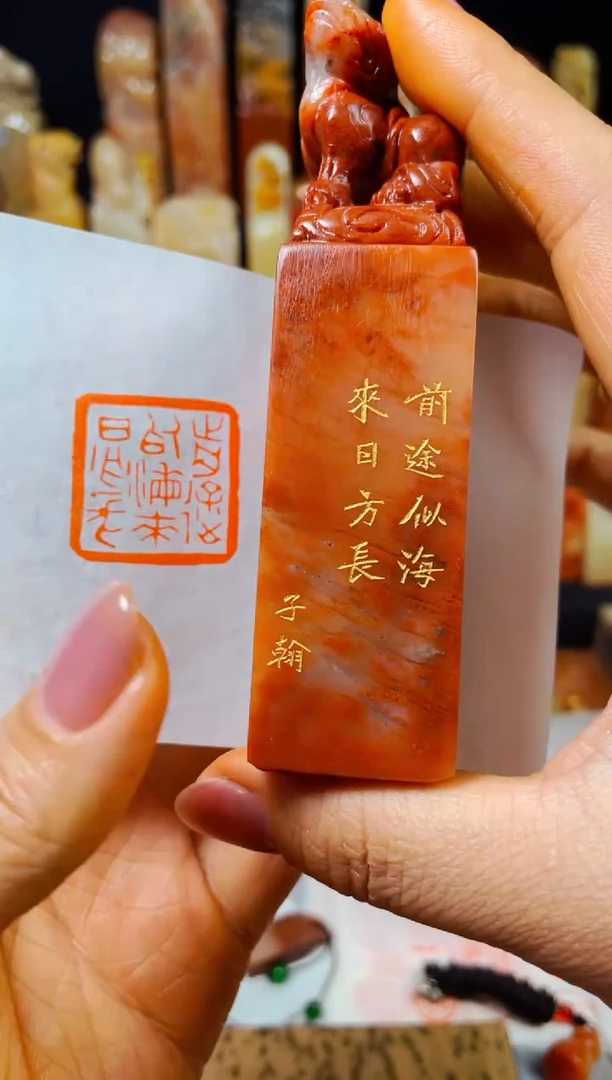 前途似海
來日方長
子翰
前途似
海來
日方長